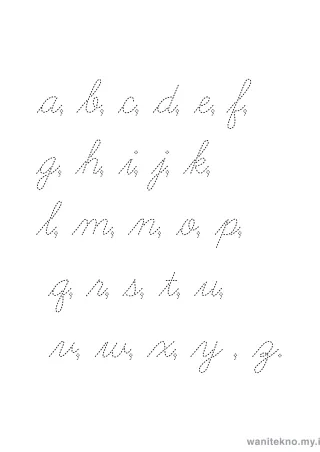 a, b, c, d, e, f,
g, h, i, j, k,
l, m, n, o, p,
q, r, s, t, u,
v, w, x, y , z.
wanitekno.my.i